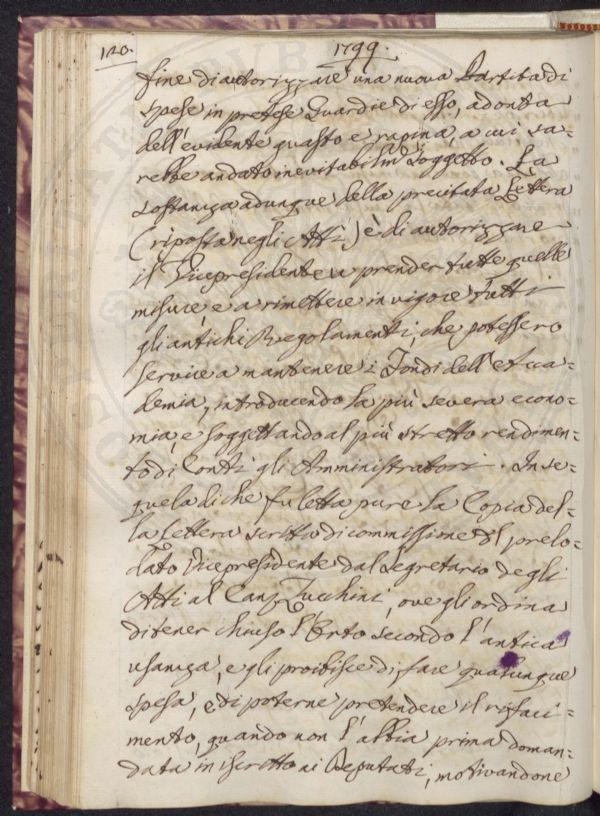 120.
1799.
fine di autorizzare una nuova Partita di
spese in pretese Guardie di esso, ad onta
dell'evidente guasto e rapina, a cui sa=
rebbe andato inevitabilm. soggetto. La
sostanza adunque della precitata Lettera
(riposta negli Atti) è di autorizzare
il Vicepresidente a prender tutte quelle
misure, e a rimettere in vigore tutti
gli antichi Regolamenti, che potessero
servire a mantenere i Fondi dell'Acca=
demia, introducendo la più severa econo=
mia, e soggettando al più stretto rendimen=
to di Conti gli Amministratori. In se=
quela di che fu letta pure la Copia del=
la Lettera scritta di commissione del prelo=
dato Vicepresidente dal Segretario degli
Atti al Can. Zucchini, ove gli ordina
di tener chiuso l'Orto secondo l'antica
usanza, e gli proibisce di fare qualunque
spesa, e di poterne pretendere il rifaci=
mento, quando non l'abbia prima doman=
data in iscritto ai Deputati, motivandone